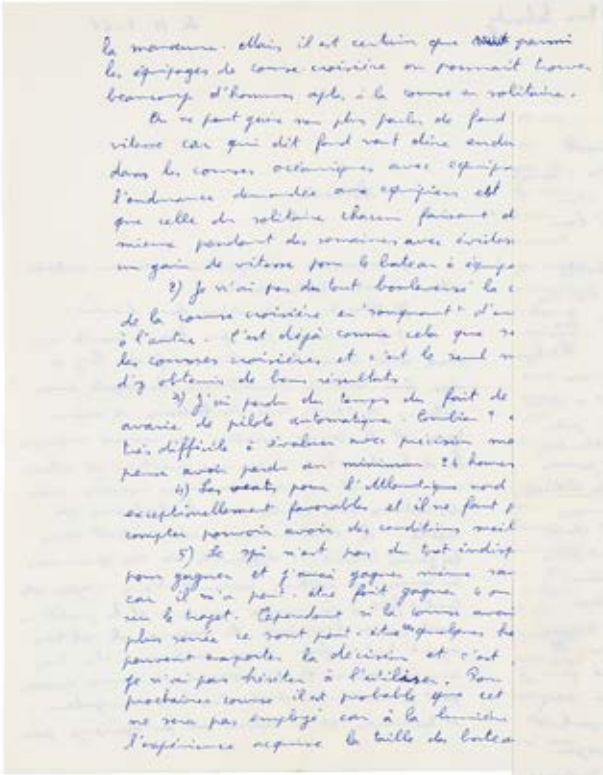 la manœuvre. Mais il est certain que parmi
les équipages de course-croisière on pourrait trouver
beaucoup d'hommes aptes à la course en solitaire.
On ne peut guère non plus parler de fond
vitesse car qui dit fond veut dire endu
dans les courses océaniques avec équipa
l'endurance demandée aux équipiers est
que celle du solitaire chacun faisant d
mieux pendant des semaines avec éviden
un gain de vitesse pour le bateau à équipa
2) Je n'ai pas du tout bouleversé la c
de la course croisière en "
à l'autre. C'est déjà comme cela que
les courses croisières et c'est le seul m
d'y obtenir de bons résultats.
3) J'ai perdu du temps du fait de
avarie de pilote automatique. Combien ?
très difficile à évaluer avec précision ma
pense avoir perdu au minimum 24 heures
4) Les vents pour l'Atlantique nord
exceptionellement favorables et il ne faut p
compter pouvoir avoir des conditions meil
5) Le spi n'est pas du tout indisp
pour gagner et j'aurai gagné même sa
car il m'a peut-être fait gagner 4 ou
sur le trajet. Cependant si la course avai
plus serrée ce sont peut-être quelques he
peuvent emporter la décision et c'est
je n'ai pas hésité à l'utiliser. Pour
prochaine course il est probable que cet
ne sera pas employé car à la lumière
l'expérience acquise la taille des batea